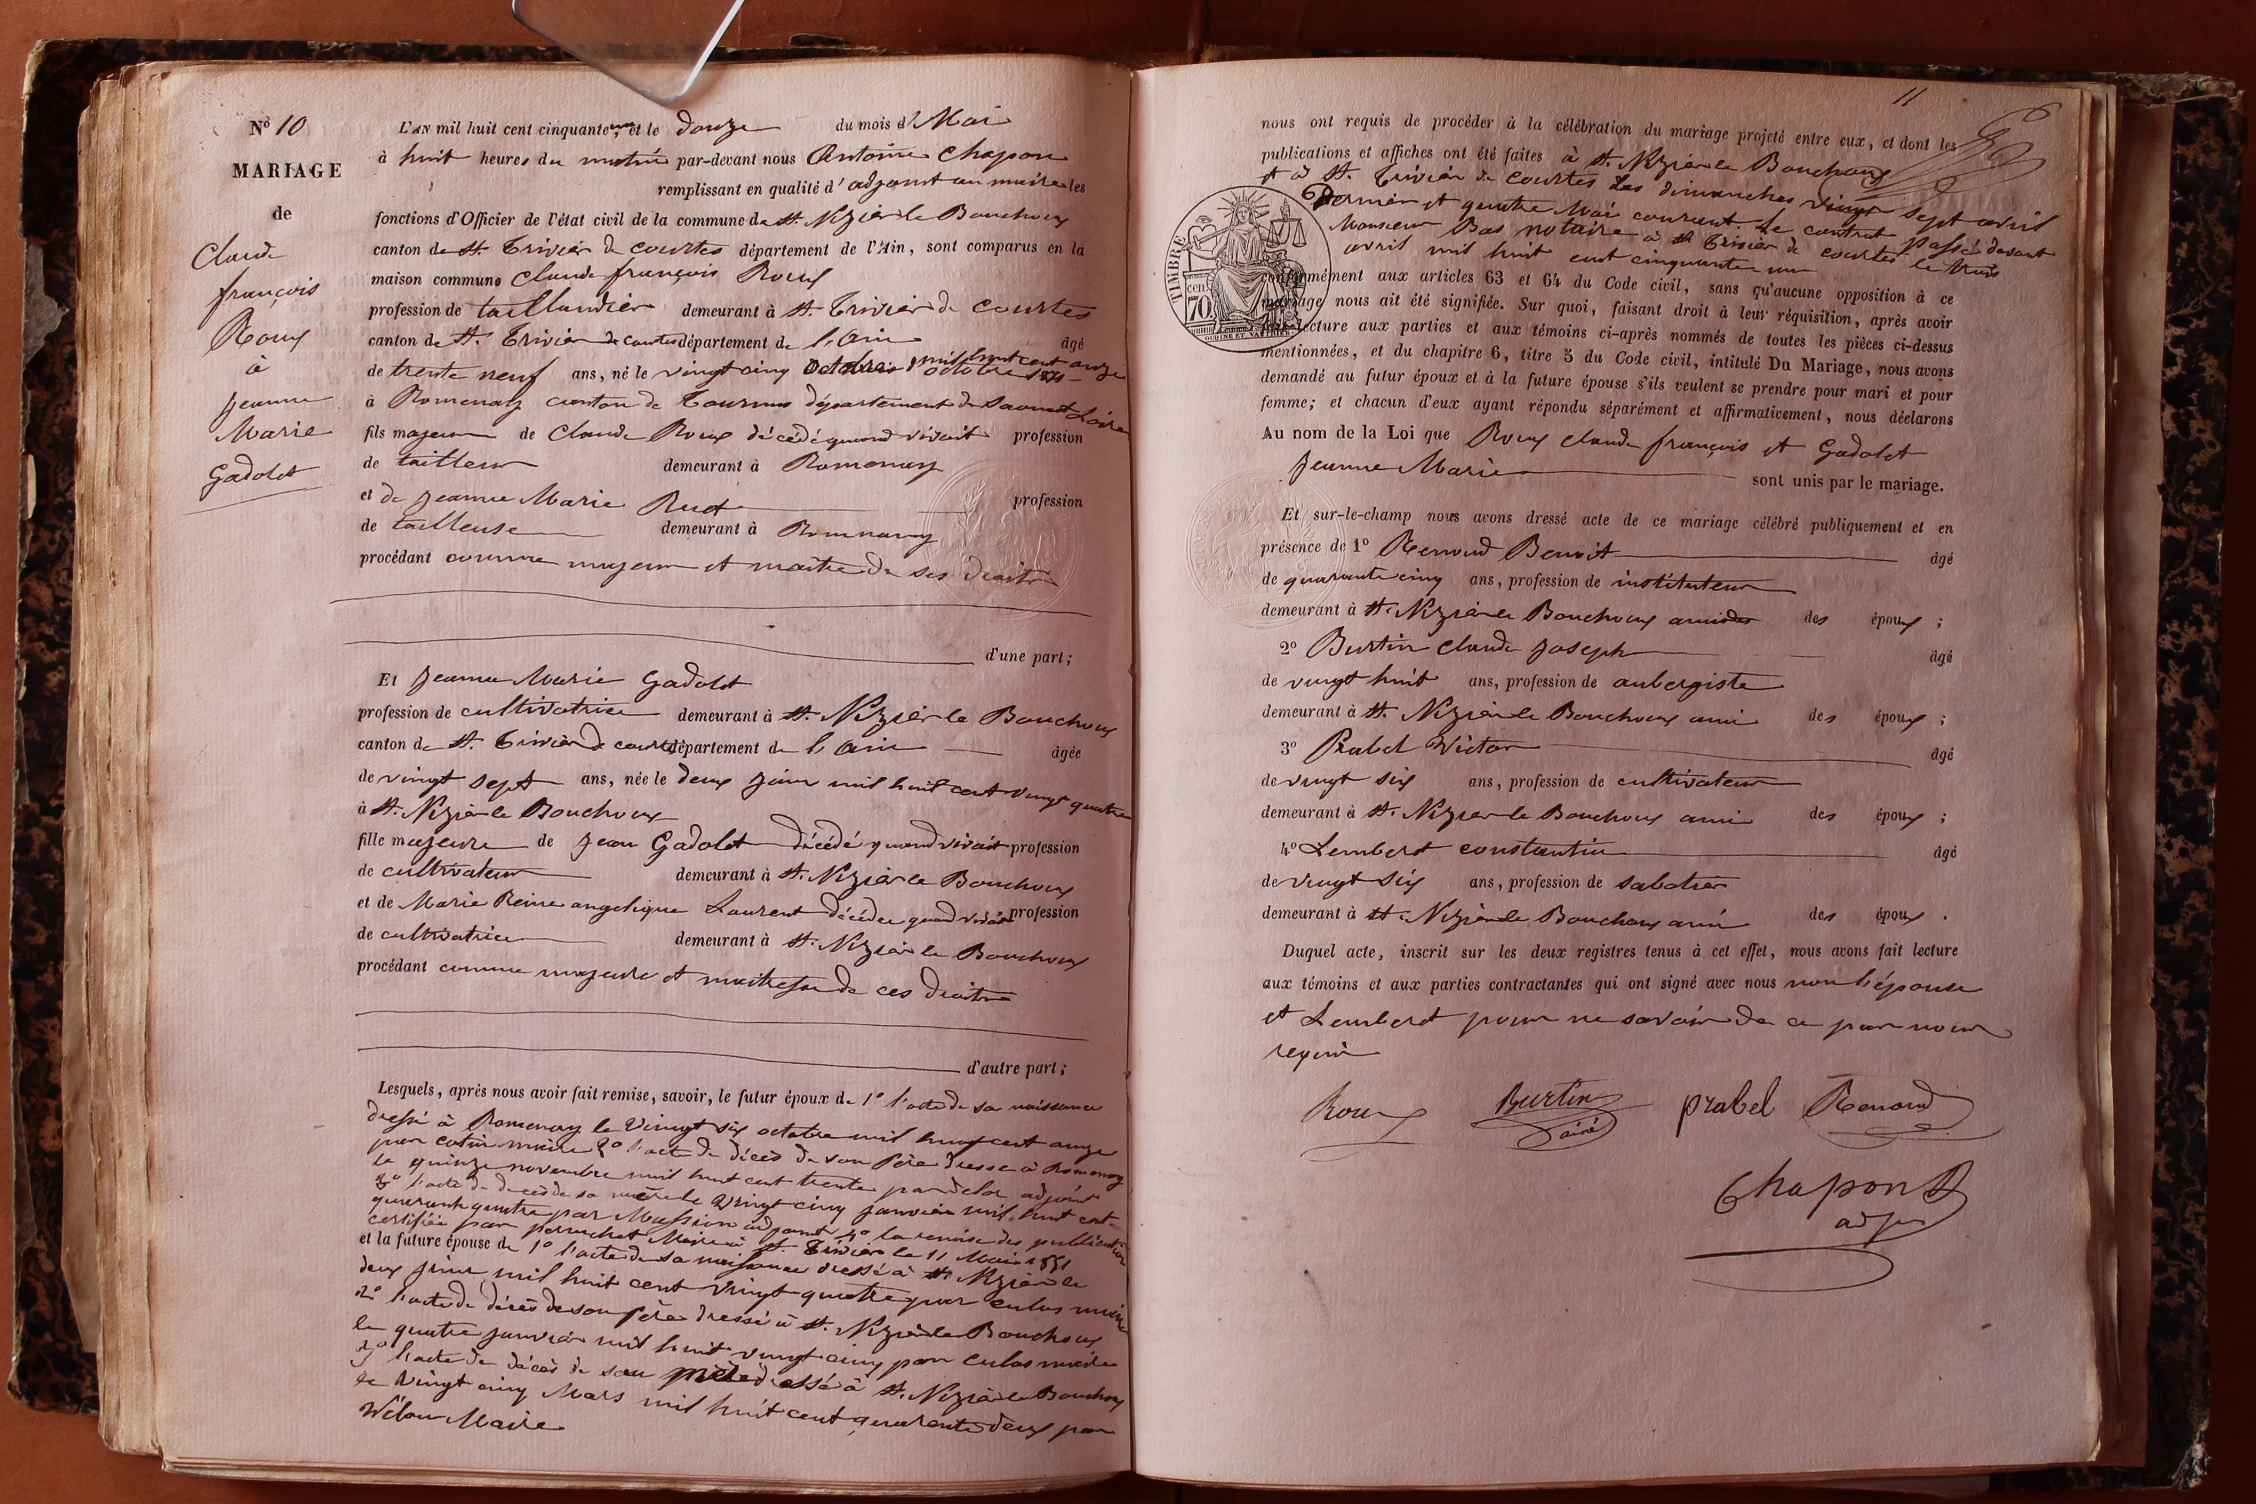 Nº 10
MARIAGE
de
Claude
françois
Roux
à
jeanne
Marie
Gadolet
L'AN mil huit cent cinquante un, et le douze du mois de Mai
à huit heures du matin par-devant nous Antoine Chapon
remplissant en qualité d'adjoint au maire les
fonctions d'Officier de l'état civil de la commune de St. Nizier le Bouchoux
canton de St. Trivier de courtes département de l'Ain, sont comparus en la
maison commune Claude françois Roux
profession de taillandier demeurant à St. Trivier de courtes
canton de St. Trivier de courtes département de l'Ain âgé
de trente neuf ans, né le vingt cinq octobre mil huit cent onze
à Romenay canton de Tournus département de Saone et Loire
fils majeur de Claude Roux décédé quand vivait profession
de tailleur demeurant à Romenay
et de jeanne Marie Rudt profession
de tailleuse demeurant à Romenay
procédant comme majeur et maître de ses droits
d'une part;
Et jeanne Marie Gadolet
profession de cultivatrice demeurant à St. Nizier le Bouchoux
canton de St. Trivier de courtes département de l'Ain âgée
de vingt sept ans, née le deux juin mil huit cent vingt quatre
à St. Nizier le Bouchoux
fille majeure de jean Gadolet décédé quand vivait profession
de cultivateur demeurant à St. Nizier le Bouchoux
et de Marie Reine angelique Laurent décédée quand vivait profession
de cultivatrice demeurant à St. Nizier le Bouchoux
procédant comme majeure et maitresse de ces droits
d'autre part;
Lesquels, après nous avoir fait remise, savoir, le futur époux de 1º l'acte de sa naissance
dressé à Romenay le vingt six octobre mil huit cent onze
par maire 2º l'acte de décès de son Père dressé à Romenay
le quinze novembre mil huit cent trente par delor adjoint
3º l'acte de décès de sa mère le vingt cinq janvier mil huit cent
quarante quatre par Massion adjoint 4º la remise des publications
certifiée par perruchet Maire à St. Trivier le 11 Mai 1851
et la future épouse de 1º l'acte de sa naissance dressé à St. Nizier le
deux juin mil huit cent vingt quatre par culas maire
2º l'acte de décès de son Père dressé à St. Nizier le Bouchoux
le quatre janvier mil huit vingt cinq par culas maire
3º l'acte de décès de sa mère dressé à St. Nizier le Bouchoux
le vingt cinq Mars mil huit cent quarante deux par
Vélon Maire
11
nous ont requis de procéder à la célébration du mariage projeté entre eux, et dont les
publications et affiches ont été faites à St. Nizier le Bouchoux
et à St. Trivier de courtes Les dimanches vingt sept avril
Dernier et quatre Mai courant. Le contrat passé devant
Monsieur Bas notaire à St Trivier de courtes le trois
avril mil huit cent cinquante un
conformément aux articles 63 et 64 du Code civil, sans qu'aucune opposition à ce
mariage nous ait été signifiée. Sur quoi, faisant droit à leur réquisition, après avoir
lecture aux parties et aux témoins ci-après nommés de toutes les pièces ci-dessus
mentionnées, et du chapitre 6, titre 5 du Code civil, intitulé Du Mariage, nous avons
demandé au futur époux et à la future épouse s'ils veulent se prendre pour mari et pour
femme; et chacun d'eux ayant répondu séparément et affirmativement, nous déclarons
Au nom de la Loi que Roux claude françois et Gadolet
jeanne Marie sont unis par le mariage.
Et sur-le-champ nous avons dressé acte de ce mariage célébré publiquement et en
présence de 1º Renoud Benoit âgé
de quarante cinq ans, profession de instituteur
demeurant à St. Nizier le Bouchoux ami des époux;
2º Burtin claude joseph âgé
de vingt huit ans, profession de aubergiste
demeurant à St. Nizier le Bouchoux ami des époux;
3º Prabel Victor âgé
de vingt six ans, profession de cultivateur
demeurant à St. Nizier le Bouchoux ami des époux;
4º Lemberet constantin âgé
de vingt six ans, profession de sabotier
demeurant à St. Nizier le Bouchoux ami des époux.
Duquel acte, inscrit sur les deux registres tenus à cet effet, nous avons fait lecture
aux témoins et aux parties contractantes qui ont signé avec nous non l'épouse
et Lemberet pour ne savoir de ce par nous
requis
Roux Burtin ainé prabel Renoud
Chapon A
adj
TIMBRE
70 cen
OUDINE ET VAUTHIER